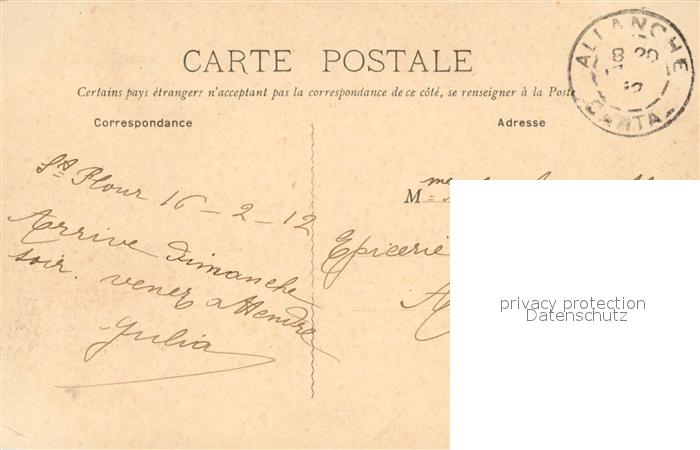 CARTE POSTALE
Certains pays étrangers n'acceptant pas la correspondance de ce côté, se renseigner à la Poste
Correspondance
Adresse
ALLANCHE
CANTAL
St Flour 16-2-12
Arrive dimanche
soir. venez attendre
Julia
M
Epicerie
privacy protection
Datenschutz